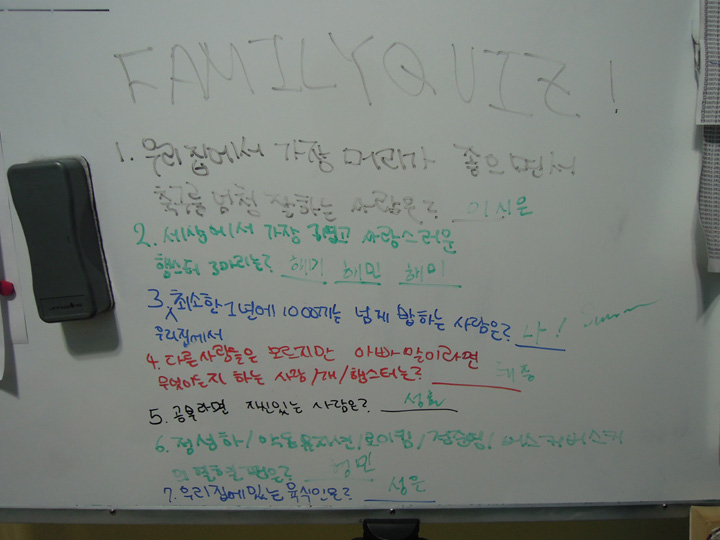 FAMILY QUIZ!
1. 우리집에서 가장 머리가 좋으면서
축구를 엄청 잘하는 사람은?
2. 세상에서 가장 귀엽고 사랑스러운
햄스터 3마리는? 해기 해민 해미
3. 최소한 1년에 1000끼는 넘게 밥하는 사람은? 나!
우리집에서
4. 다른사람들은 모르지만 아빠 말이라면
무엇이든지 하는 사람/개/햄스터는?
5. 공부라면 자신있는 사람은?
6. 정성하/악동뮤지션/로이킴/정준영/버스커버스커
은?
7. 우리집에 있는 육식인은? 성은